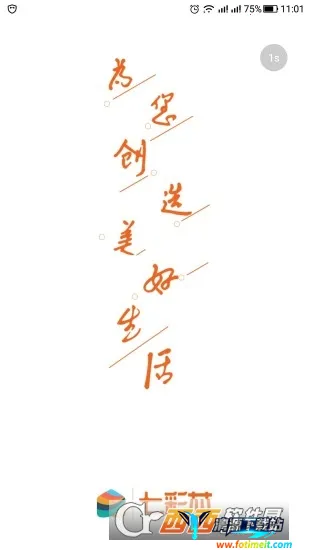 75% 11:01
1s
為
您
创
造
美
好
生
活
七彩
西西软件园
清源下载站
www.fotimeit.com